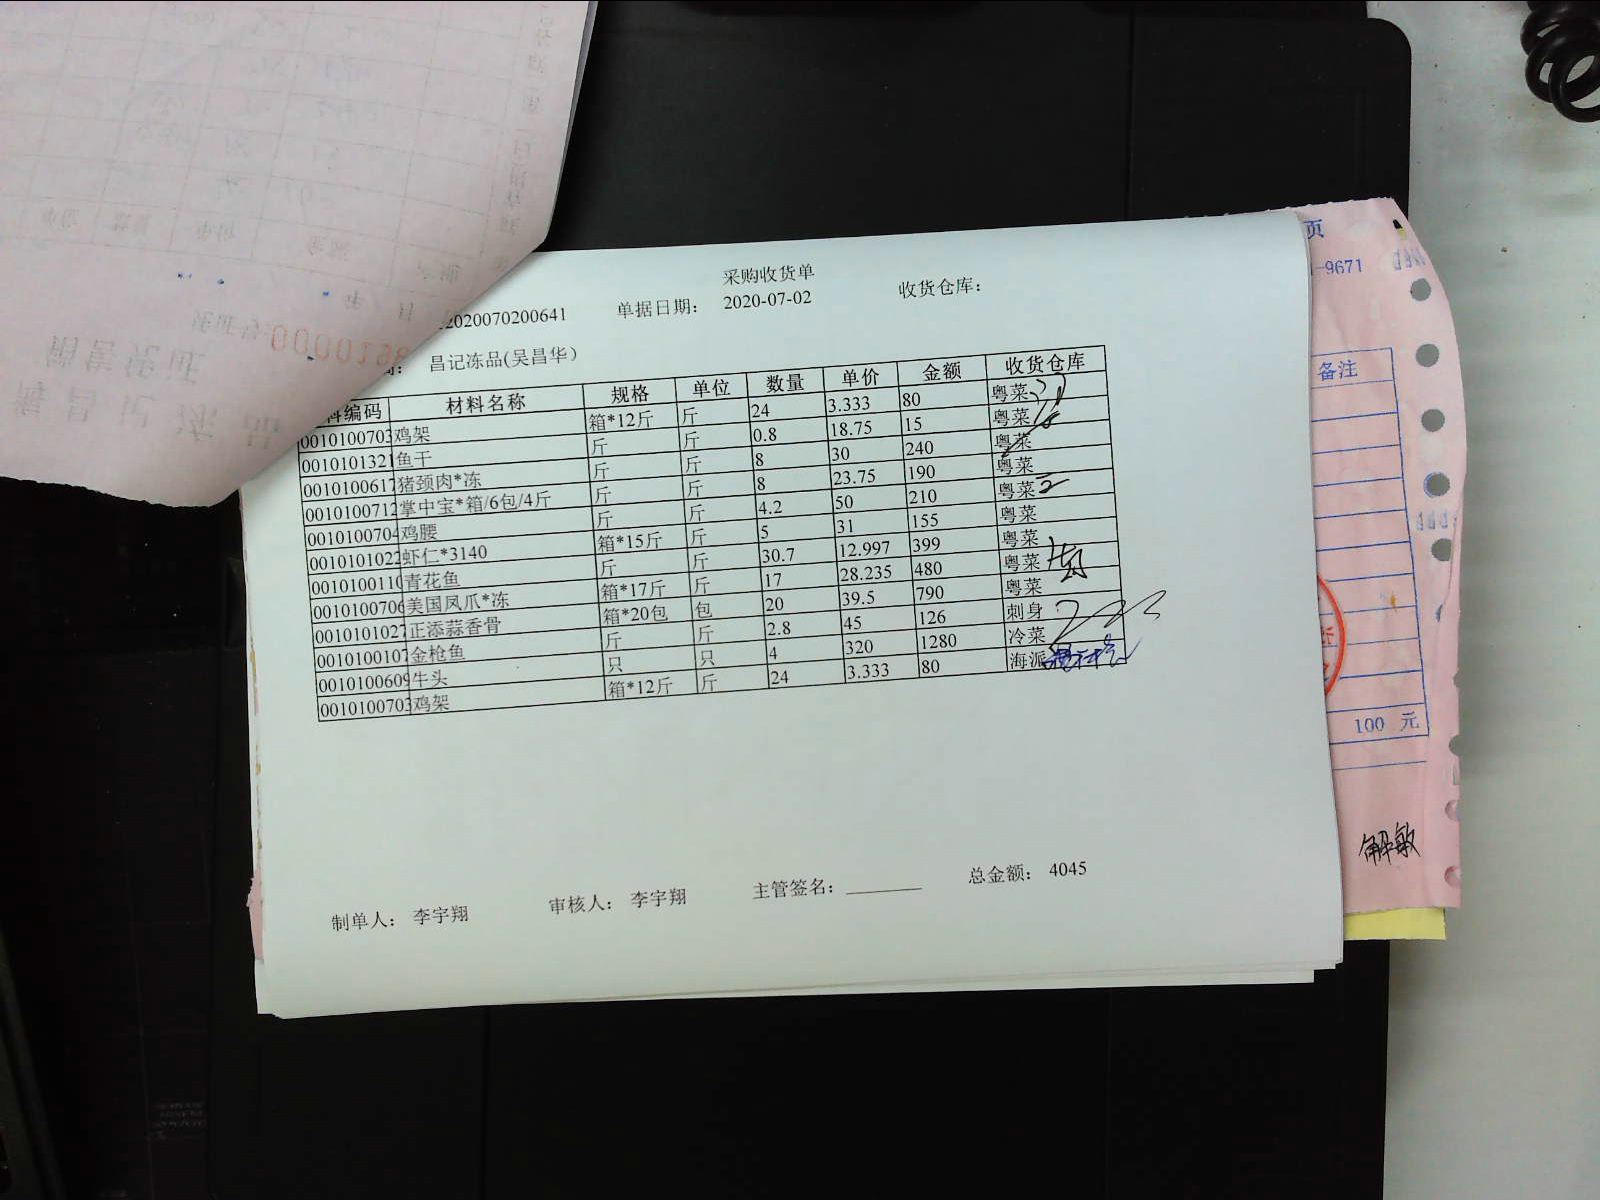 采购收货单
2020070200641 单据日期： 2020-07-02 收货仓库：
昌记冻品(吴昌华)
料编码 材料名称 规格 单位 数量 单价 金额 收货仓库
0010100703 鸡架 箱*12斤 斤 24 3.333 80 粤菜
0010101321 鱼干 斤 斤 0.8 18.75 15 粤菜
0010100617 猪颈肉*冻 斤 斤 8 30 240 粤菜
0010100712 掌中宝*箱/6包/4斤 斤 斤 8 23.75 190 粤菜
0010100704 鸡腰 斤 斤 4.2 50 210 粤菜
0010101022 虾仁*3140 箱*15斤 斤 5 31 155 粤菜
0010100110 青花鱼 斤 斤 30.7 12.997 399 粤菜
0010100706 美国凤爪*冻 箱*17斤 斤 17 28.235 480 粤菜
0010101027 正添蒜香骨 箱*20包 包 20 39.5 790 粤菜
0010100107 金枪鱼 斤 斤 2.8 45 126 刺身
0010100609 牛头 只 只 4 320 1280 冷菜
0010100703 鸡架 箱*12斤 斤 24 3.333 80 海派
制单人： 李宇翔 审核人： 李宇翔 主管签名： 总金额： 4045
页
-9671
备注
100 元
解敏